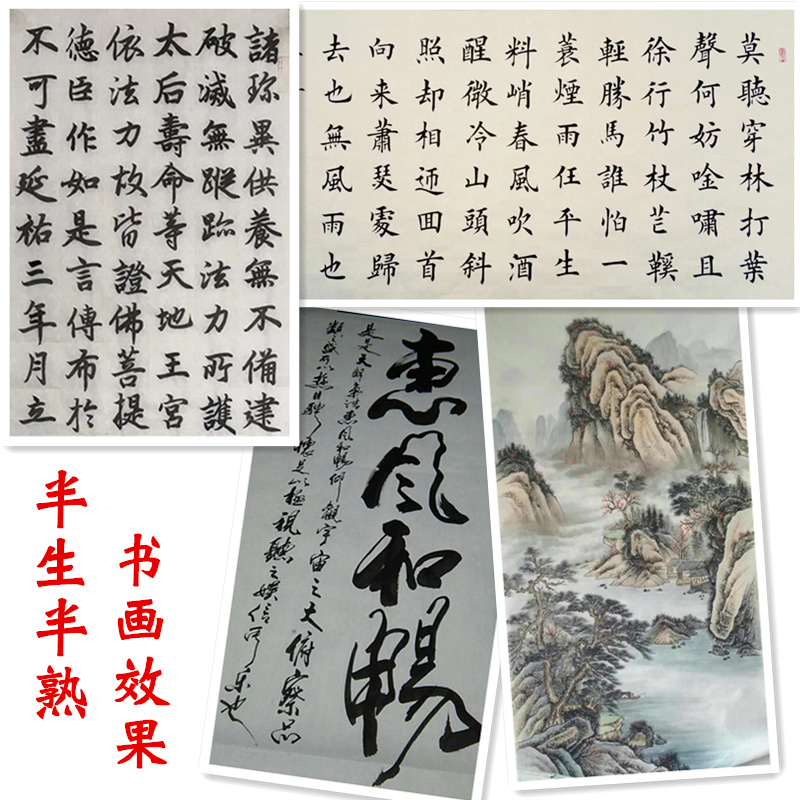 諸珎異供養無不備建
破滅無蹤跡法力所護
太后壽命等天地王宮
依法力故皆證佛菩提
德臣作如是言傳布於
不可盡延祐三年月立
莫聽穿林打葉
聲何妨唫嘯且
徐行竹杖芒鞵
輕勝馬誰怕一
蓑煙雨任平生
料峭春風吹酒
醒微冷山頭斜
照却相迊回首
向来蕭瑟處歸
去也無風雨也
惠风和暢
天朗氣清惠风和暢仰觀宇宙之大俯察品
類之盛所以遊目騁懷足以極視聽之娱信可乐也
半生半熟
书画效果